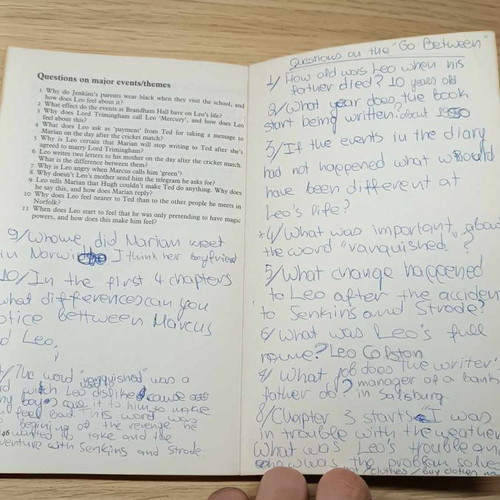 Questions on major events/themes
1 Why do Jenkin's parents wear black when they visit the school, and
how does Leo feel about it?
2 What effect do the events at Brandham Hall have on Leo's life?
3 Why does Lord Trimingham call Leo 'Mercury', and how does Leo
feel about this?
4 What does Leo ask as 'payment' from Ted for taking a message to
Marian on the day after the cricket match?
5 Why is Leo certain that Marian will stop writing to Ted after she's
agreed to marry Lord Trimingham?
6 Leo writes two letters to his mother on the day after the cricket match.
What is the difference between them?
7 Why is Leo angry when Marcus calls him 'green'?
8 Why doesn't Leo's mother send the telegram he asks for?
9 Leo tells Marian that Hugh couldn't make Ted do anything. Why does
he say this, and how does Marian reply?
10 Why does Leo feel nearer to Ted than to the other people he meets in
Norfolk?
11 When does Leo start to feel that he was only pretending to have magic
powers, and how does this make him feel?
9/ Whome did Marian meet
in Norwi I think her boyfriend
10/ In the first 4 chapters
what differences can you
otice bettween Marcus
d Leo,
4/ The word "vanquished" was a
d witch Leo disliked cause
boys it to him to make
feel bad. This word was
beginning of the revenge he
wanted to take and the
venture with Senkins and Strode
Questions on the "Go Between"
1/ How old was Leo when his
father died? 10 years old
2/ What year does the book
start being written? about
3/ If the events in the diary
had not happened what would
have been different at
Leo's life?
*4/ What was important about
the word "vanquished"?
5/ What change happened
to Leo after the accident
to Senkins and Strode?
6/ What was Leo's full
name? Leo Colston
7/ What job does the writer's
father do? manager of a bank
in Salsburg
8/ Chapter 3 starts "I was
in trouble with the weather
What was Leo's trouble an
how was the problem solve
hot clothes / buy clothes